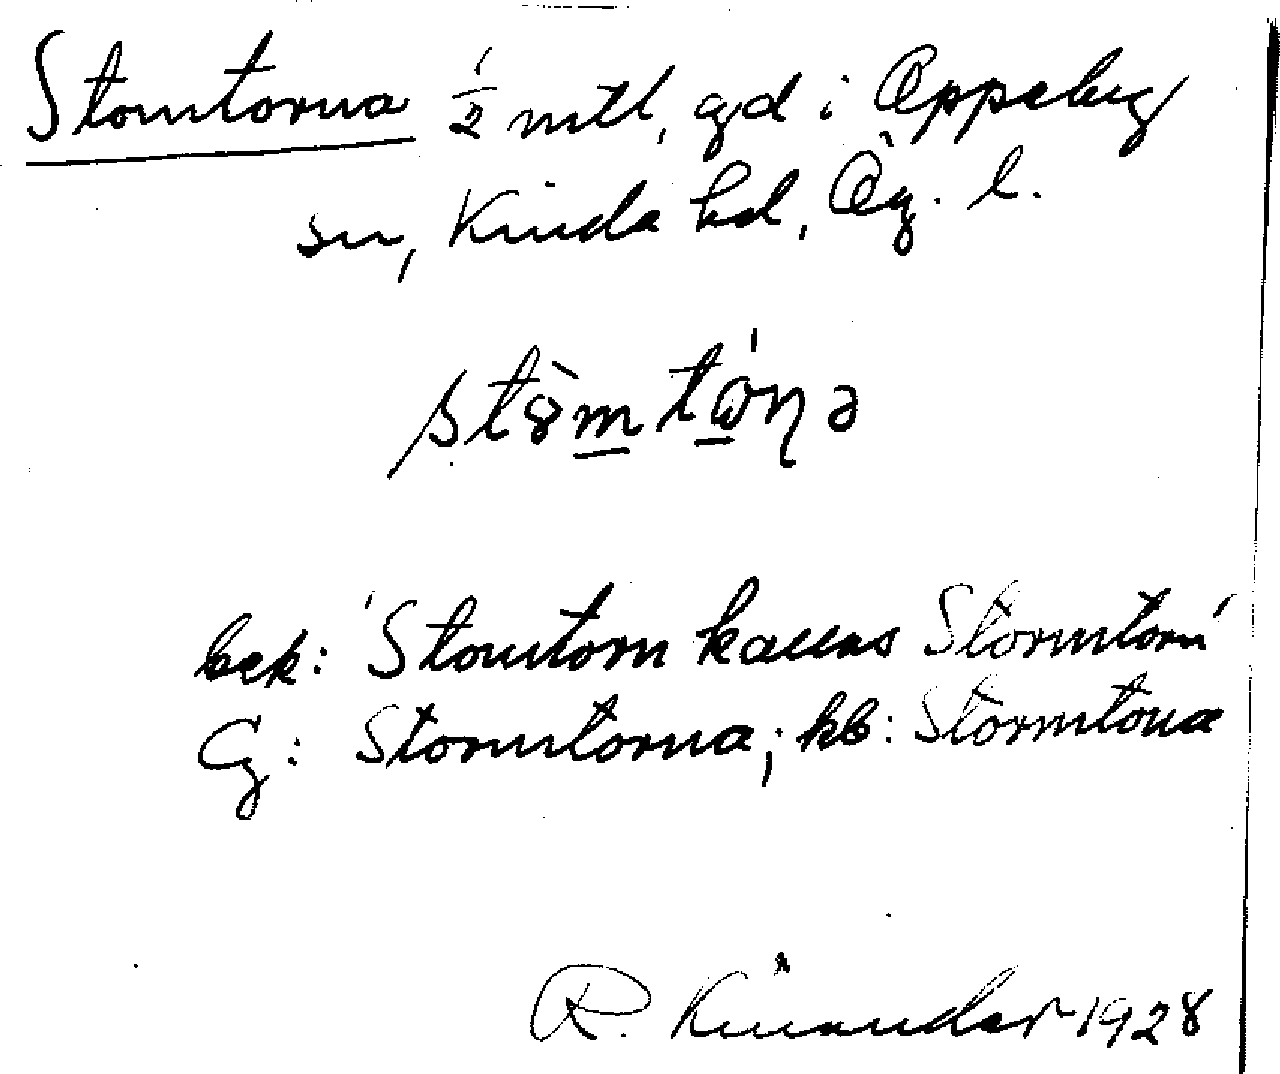 Stomtorna 1/2 mtl, gd i Oppeby
sn, Kinda hd, Ög. l.
bek: 'Stomtorn kallas Stormtorn'
G: Stormtorna; kb: Stormtorna
R. Kinander 1928